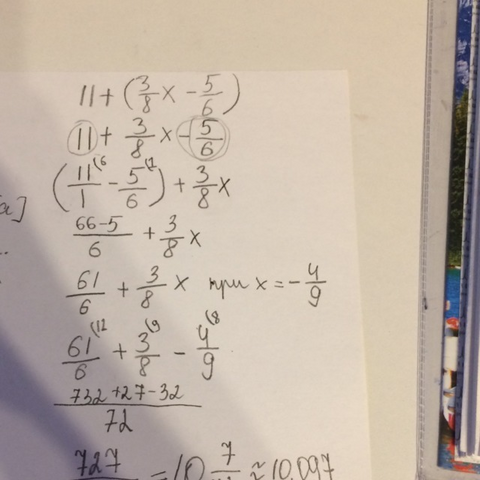 11 + (3/8 x - 5/6)
11 + 3/8 x - 5/6
(11/1 (6 - 5/6 (1) + 3/8 x
66-5/6 + 3/8 x
61/6 + 3/8 x при x = - 4/9
61/6 (12 + 3/8 (9 - 4/9 (8
732+27-32/72
727 = 10 7 ≈ 10,097